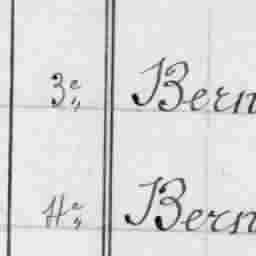 3: Bern
4: Bern